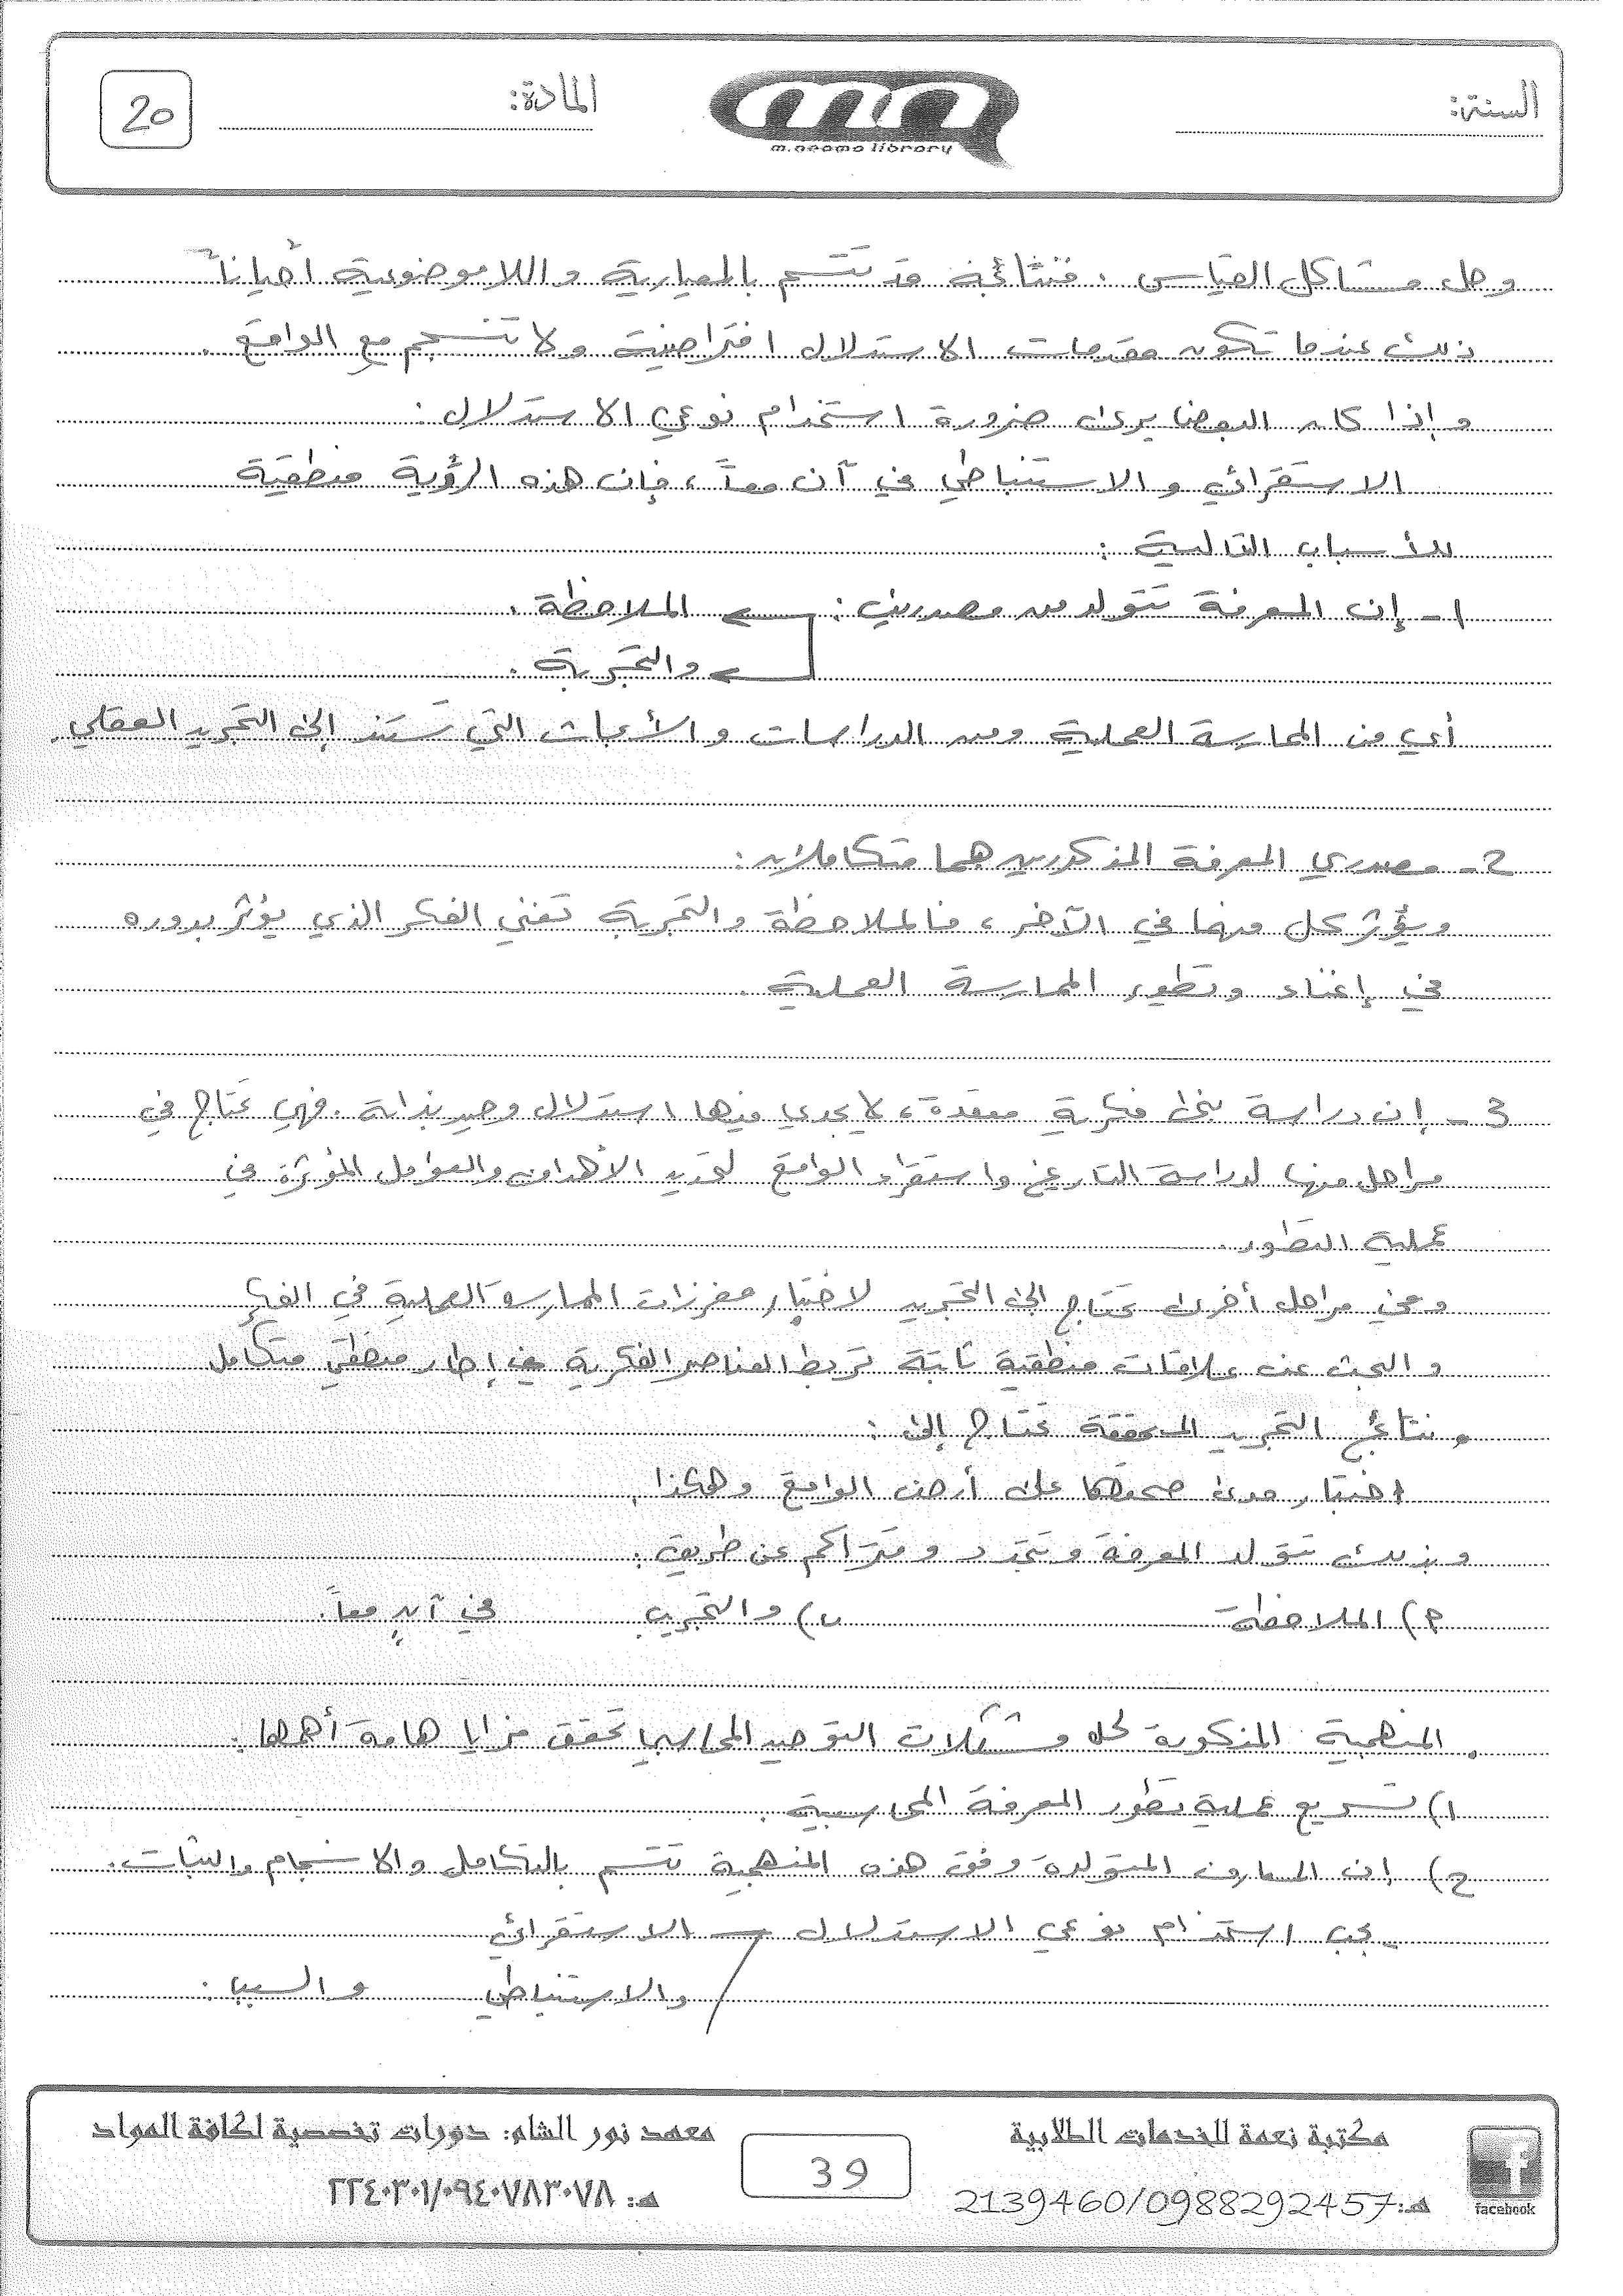 السنة:
المادة:
20
m.neama library
وحل مشاكل القياس . فنتائجه قد تتسم بالمعيارية واللاموضوعية أحياناً
ذلك عندما تكون مقدمات الاستدلال افتراضية ولا تنسجم مع الواقع .
وإذا كان البعض يرى ضرورة استخدام نوعي الاستدلال :
الاستقرائي والاستنباطي في آن معاً ، فإن هذه الرؤية منطقية
للأسباب التالية :
1- إن المعرفة تتولد من مصدرين : الملاحظة .
والتجربة .
أي من الممارسة العملية ومن الدراسات والأبحاث التي تستند إلى التجريد العقلي .
2- مصدري المعرفة المذكورين هما متكاملان :
ويؤثر كل منهما في الآخر ، فالملاحظة والتجربة تغني الفكر الذي يؤثر بدوره
في إغناء وتطوير الممارسة العملية .
3- إن دراسة بنى فكرية معقدة ، لا يجدي فيها استدلال وحيد بذاته . فهي تحتاج في
مراحل منها لدراسة التاريخ واستقراء الواقع لتحديد الأهداف والعوامل المؤثرة في
عملية التطور .
وفي مراحل أخرى تحتاج إلى التجريد لاختبار مفرزات الممارسة العملية في الفكر
والبحث عن علاقات منطقية ثابتة تربط العناصر الفكرية في إطار منطقي متكامل
ونتائج التجريد المحققة تحتاج إلى :
اختبار مدى صحتها على أرض الواقع وهكذا .
وبذلك تتولد المعرفة وتتجدد وتتراكم عن طريق :
أ) الملاحظة ب) والتجريب في آنٍ معاً .
. المنهجية المذكورة لحل مشكلات التوحيد المحاسبي تحقق مزايا هامة أهمها :
1) تسريع عملية تطور المعرفة المحاسبية .
2) إن المعارف المتولدة وفق هذه المنهجية تتسم بالتكامل والانسجام والثبات .
- يجب استخدام نوعي الاستدلال الاستقرائي
والاستنباطي والسبب :
مكتبة نعمة للخدمات الطلابية
هـ: 2139460/0988292457
facebook
39
معهد نور الشام: دورات تخصصية لكافة المواد
هـ: ٢٢٤٠٣٠١/٠٩٤٠٧٨٣٠٧٨